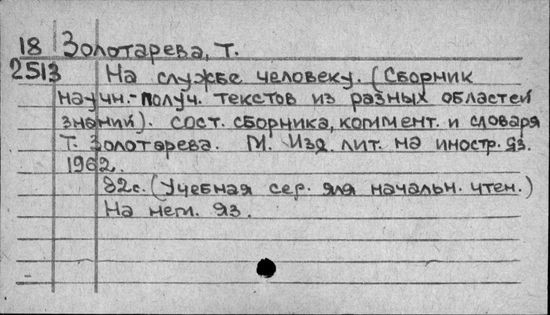 18 Золотарева, Т.
2513 На службе человеку. (Сборник
научн.-получ. текстов из разных областей
знаний). сост. сборника, коммент. и словаря
Т. Золотарева. М. Изд. лит. на иностр. яз.
1962.
82с. (Учебная сер. для начальн. чтен.)
На нем. яз.